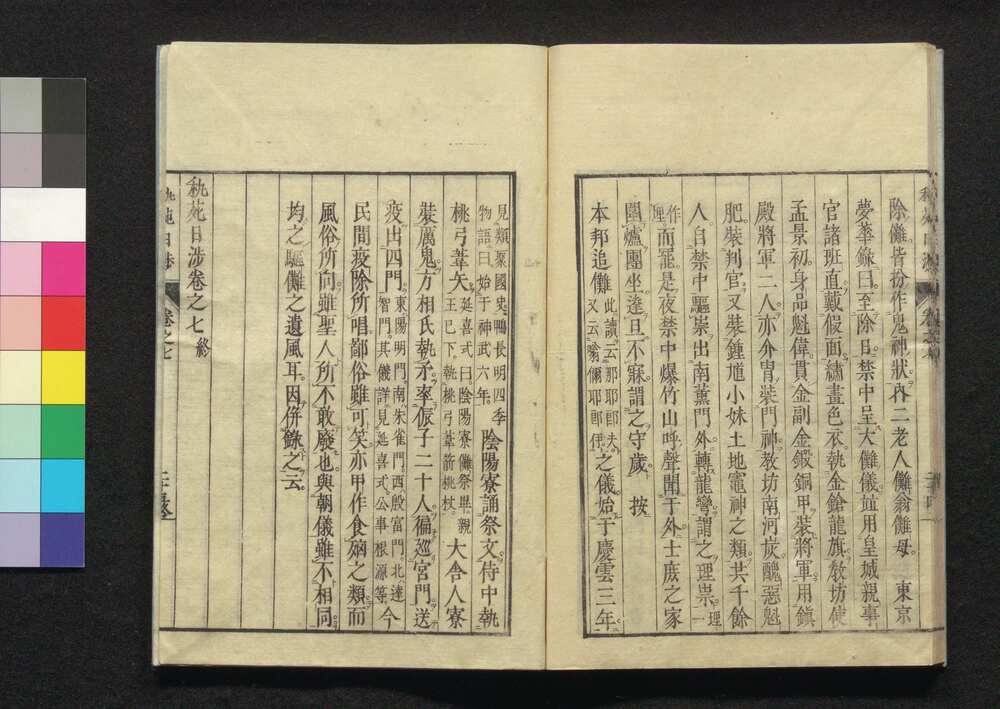 除儺皆扮作鬼神狀内二老人儺翁儺母 東京
夢華錄曰至除日禁中呈大儺儀並用皇城親事
官諸班直戴假面繡畫色衣執金鎗龍旗教坊使
孟景初身品魁偉貫金副金鍍銅甲裝將軍用鎮
殿將軍二人亦外冑裝門神教坊南河炭醜惡魁
肥裝判官又裝鍾馗小妹土地竈神之類共千餘
人自禁中驅祟出南薰門外轉龍彎謂之理祟理一
作埋而罷是夜禁中爆竹山呼聲聞于外士庶之家
圍爐團坐達旦不寐謂之守歲 按
本邦追儺此讀云那耶郎夫又云儺儞耶郎俾之儀始于慶雲三年
見類聚國史鴨長明四季物語曰始于神武六年陰陽寮誦祭文侍中執
桃弓葦矢延喜式曰陰陽寮儺祭畢親王已下執桃弓葦箭桃杖大舍人寮
裝厲鬼方相氏執矛率侲子二十人徧巡宮門送
疫出四門東陽明門南朱雀門西殷富門北達智門其儀詳見延喜式公事根源等今
民間疫除所唱鄙俗雖可笑亦甲作食𣧑之類而
風俗所向雖聖人所不敢廢也與朝儀雖不相同
均之驅儺之遺風耳因併錄之云
秇苑日涉卷之七終
秇苑日涉 卷之七